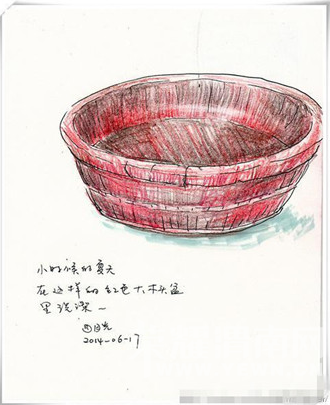 小时候的夏天
在这样的红色大木盆
里洗澡一
2014-06-17